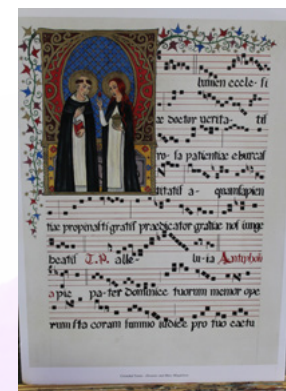 lumen eccle- si
æ doctor uerita- tis
ro- sa patientiae eburcas
titatis a- quamsapien
tiae propinasti gratis praedicator gratiae nos iunge
beatis T.P. alle- lu-ia Antyphon
a pie pa-ter dominice tuorum memor ope
rum sta coram summo iudice pro tuo caetu